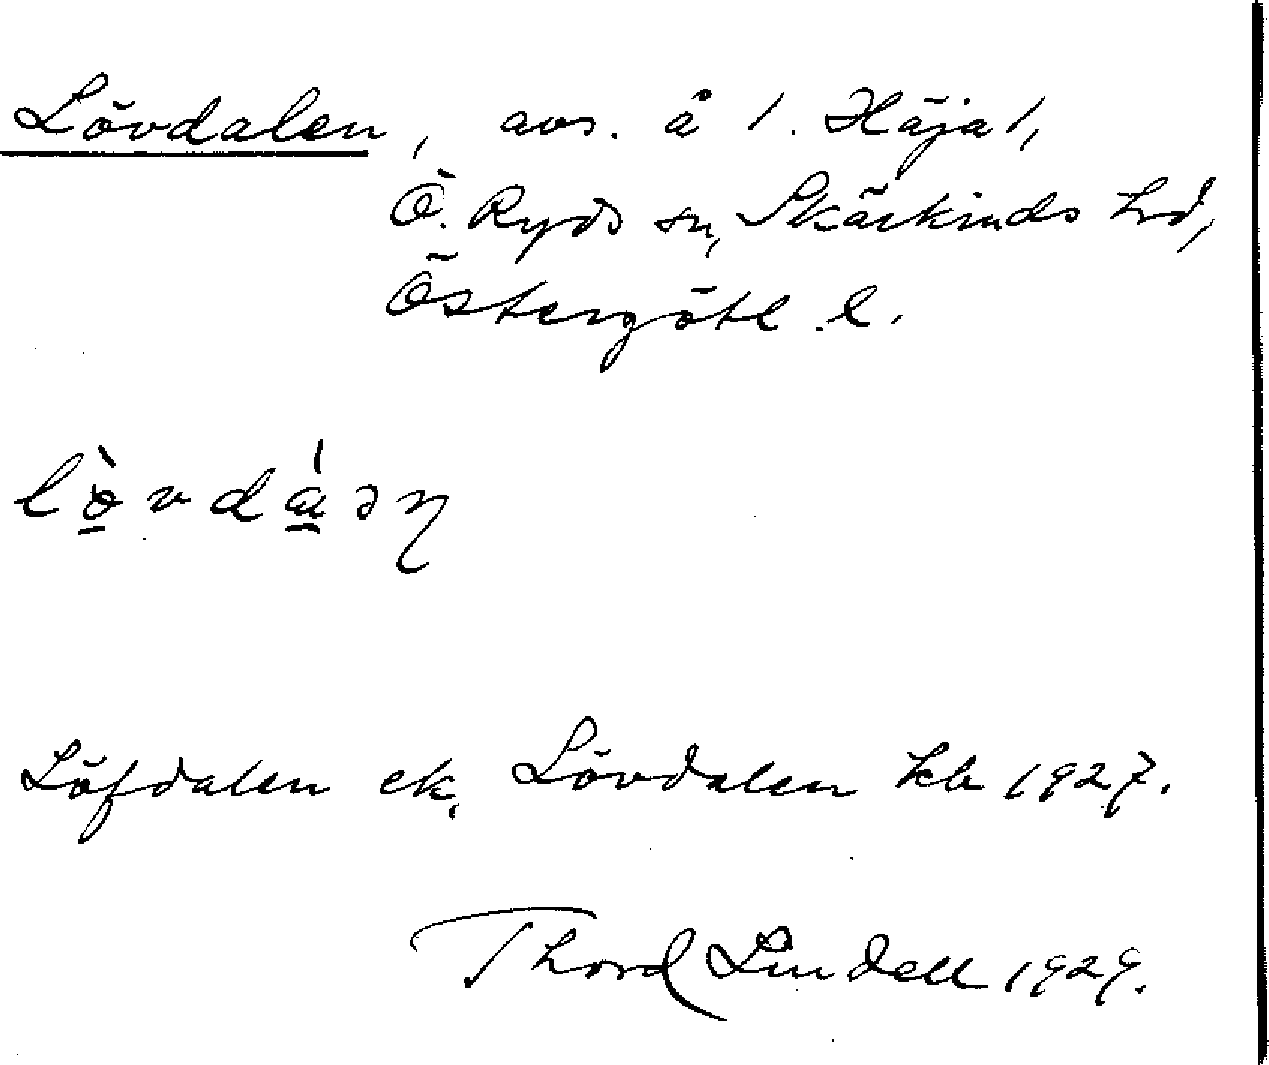 Lövdalen, avs. å 1. Häja 1,
Ö. Ryds sn, Skärkinds hd,
Östergötl. l.
lò̱vdá̱ən
Löfdalen ek. Lövdalen kb 1927.
Thord Lindell 1929.